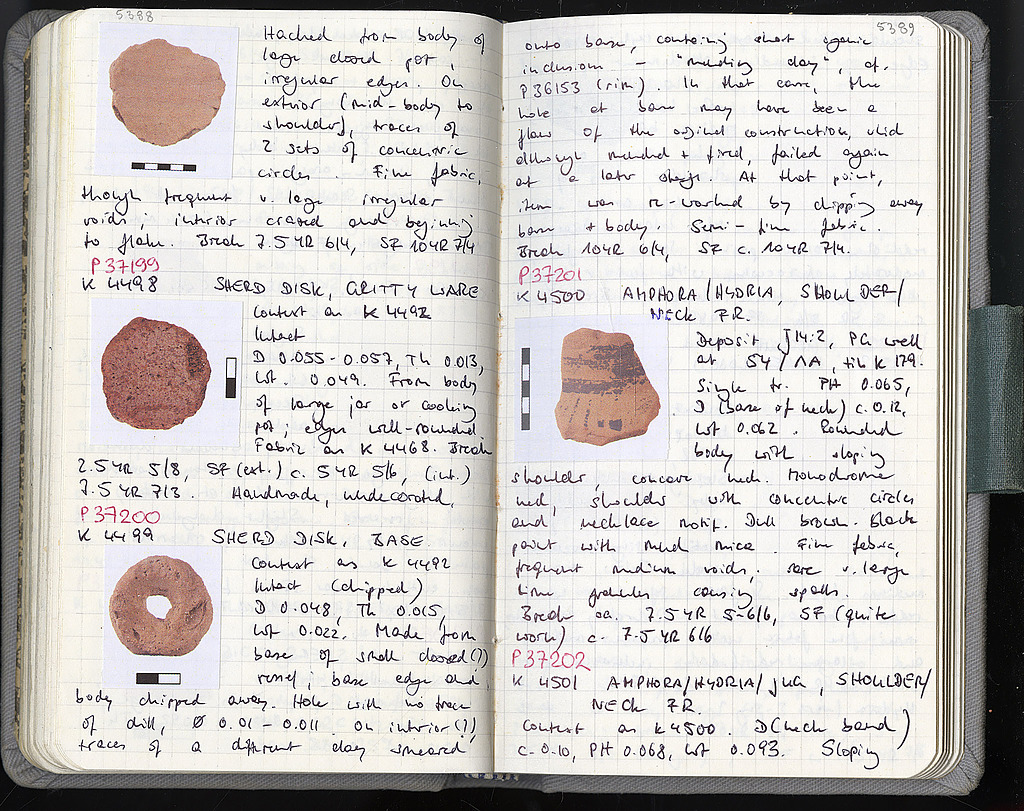 5388
Hacked from body of
large closed pot,
irregular edges. On
exterior (mid-body to
shoulder), traces of
2 sets of concentric
circles. Fine fabric,
though frequent v. large irregular
voids; interior crazed and beginning
to flake. Break 7.5 YR 6/4, SF 10YR 7/4
P37199
K 4498 SHERD DISK, GRITTY WARE
Context as K 4492
Intact
D 0.055-0.057, Th 0.013,
Wt. 0.049. From body
of large jar or cooking
pot; edges well-rounded.
Fabric as K 4468. Break
2.5 YR 5/8, SF (ext.) c. 5 YR 5/6, (int.)
7.5 YR 7/3. Handmade, undecorated.
P37200
K 4499 SHERD DISK, BASE.
Context as K 4492
Intact (chipped)
D 0.048, Th 0.015,
Wt 0.022. Made from
base of small closed(?)
vessel; base edge and
body chipped away. Hole with no trace
of drill, Ø 0.01-0.011. On interior(?),
traces of a different clay smeared
5389
onto base, containing short organic
inclusions - "mending clay", cf.
P36153 (rim). In that case, the
hole at base may have been a
flaw of the original construction, which
although mended + fired, failed again
at a later stage. At that point,
item was re-worked by chipping away
base + body. Semi-fine fabric.
Break 10YR 6/4, SF c. 10YR 7/4.
P37201
K 4500 AMPHORA/HYDRIA, SHOULDER/
NECK FR.
Deposit J14:2, PG well
at 54/ΛΑ, tin K 179.
Single fr. PH 0.065,
D (base of neck) c. 0.12,
Wt 0.062. Rounded
body with sloping
shoulder, concave neck. Monochrome
neck, shoulder with concentric circles
and necklace motif. Dull brown-black
paint with much mica. Fine fabric,
frequent medium voids, rare v. large
lime granules causing spalls.
Break ca. 7.5 YR 5-6/6, SF (quite
worn) c. 7.5 YR 6/6
P37202
K 4501 AMPHORA/HYDRIA/JUG, SHOULDER/
NECK FR.
Context as K4500. D(neck band)
c. 0.10, PH 0.068, Wt 0.093. Sloping